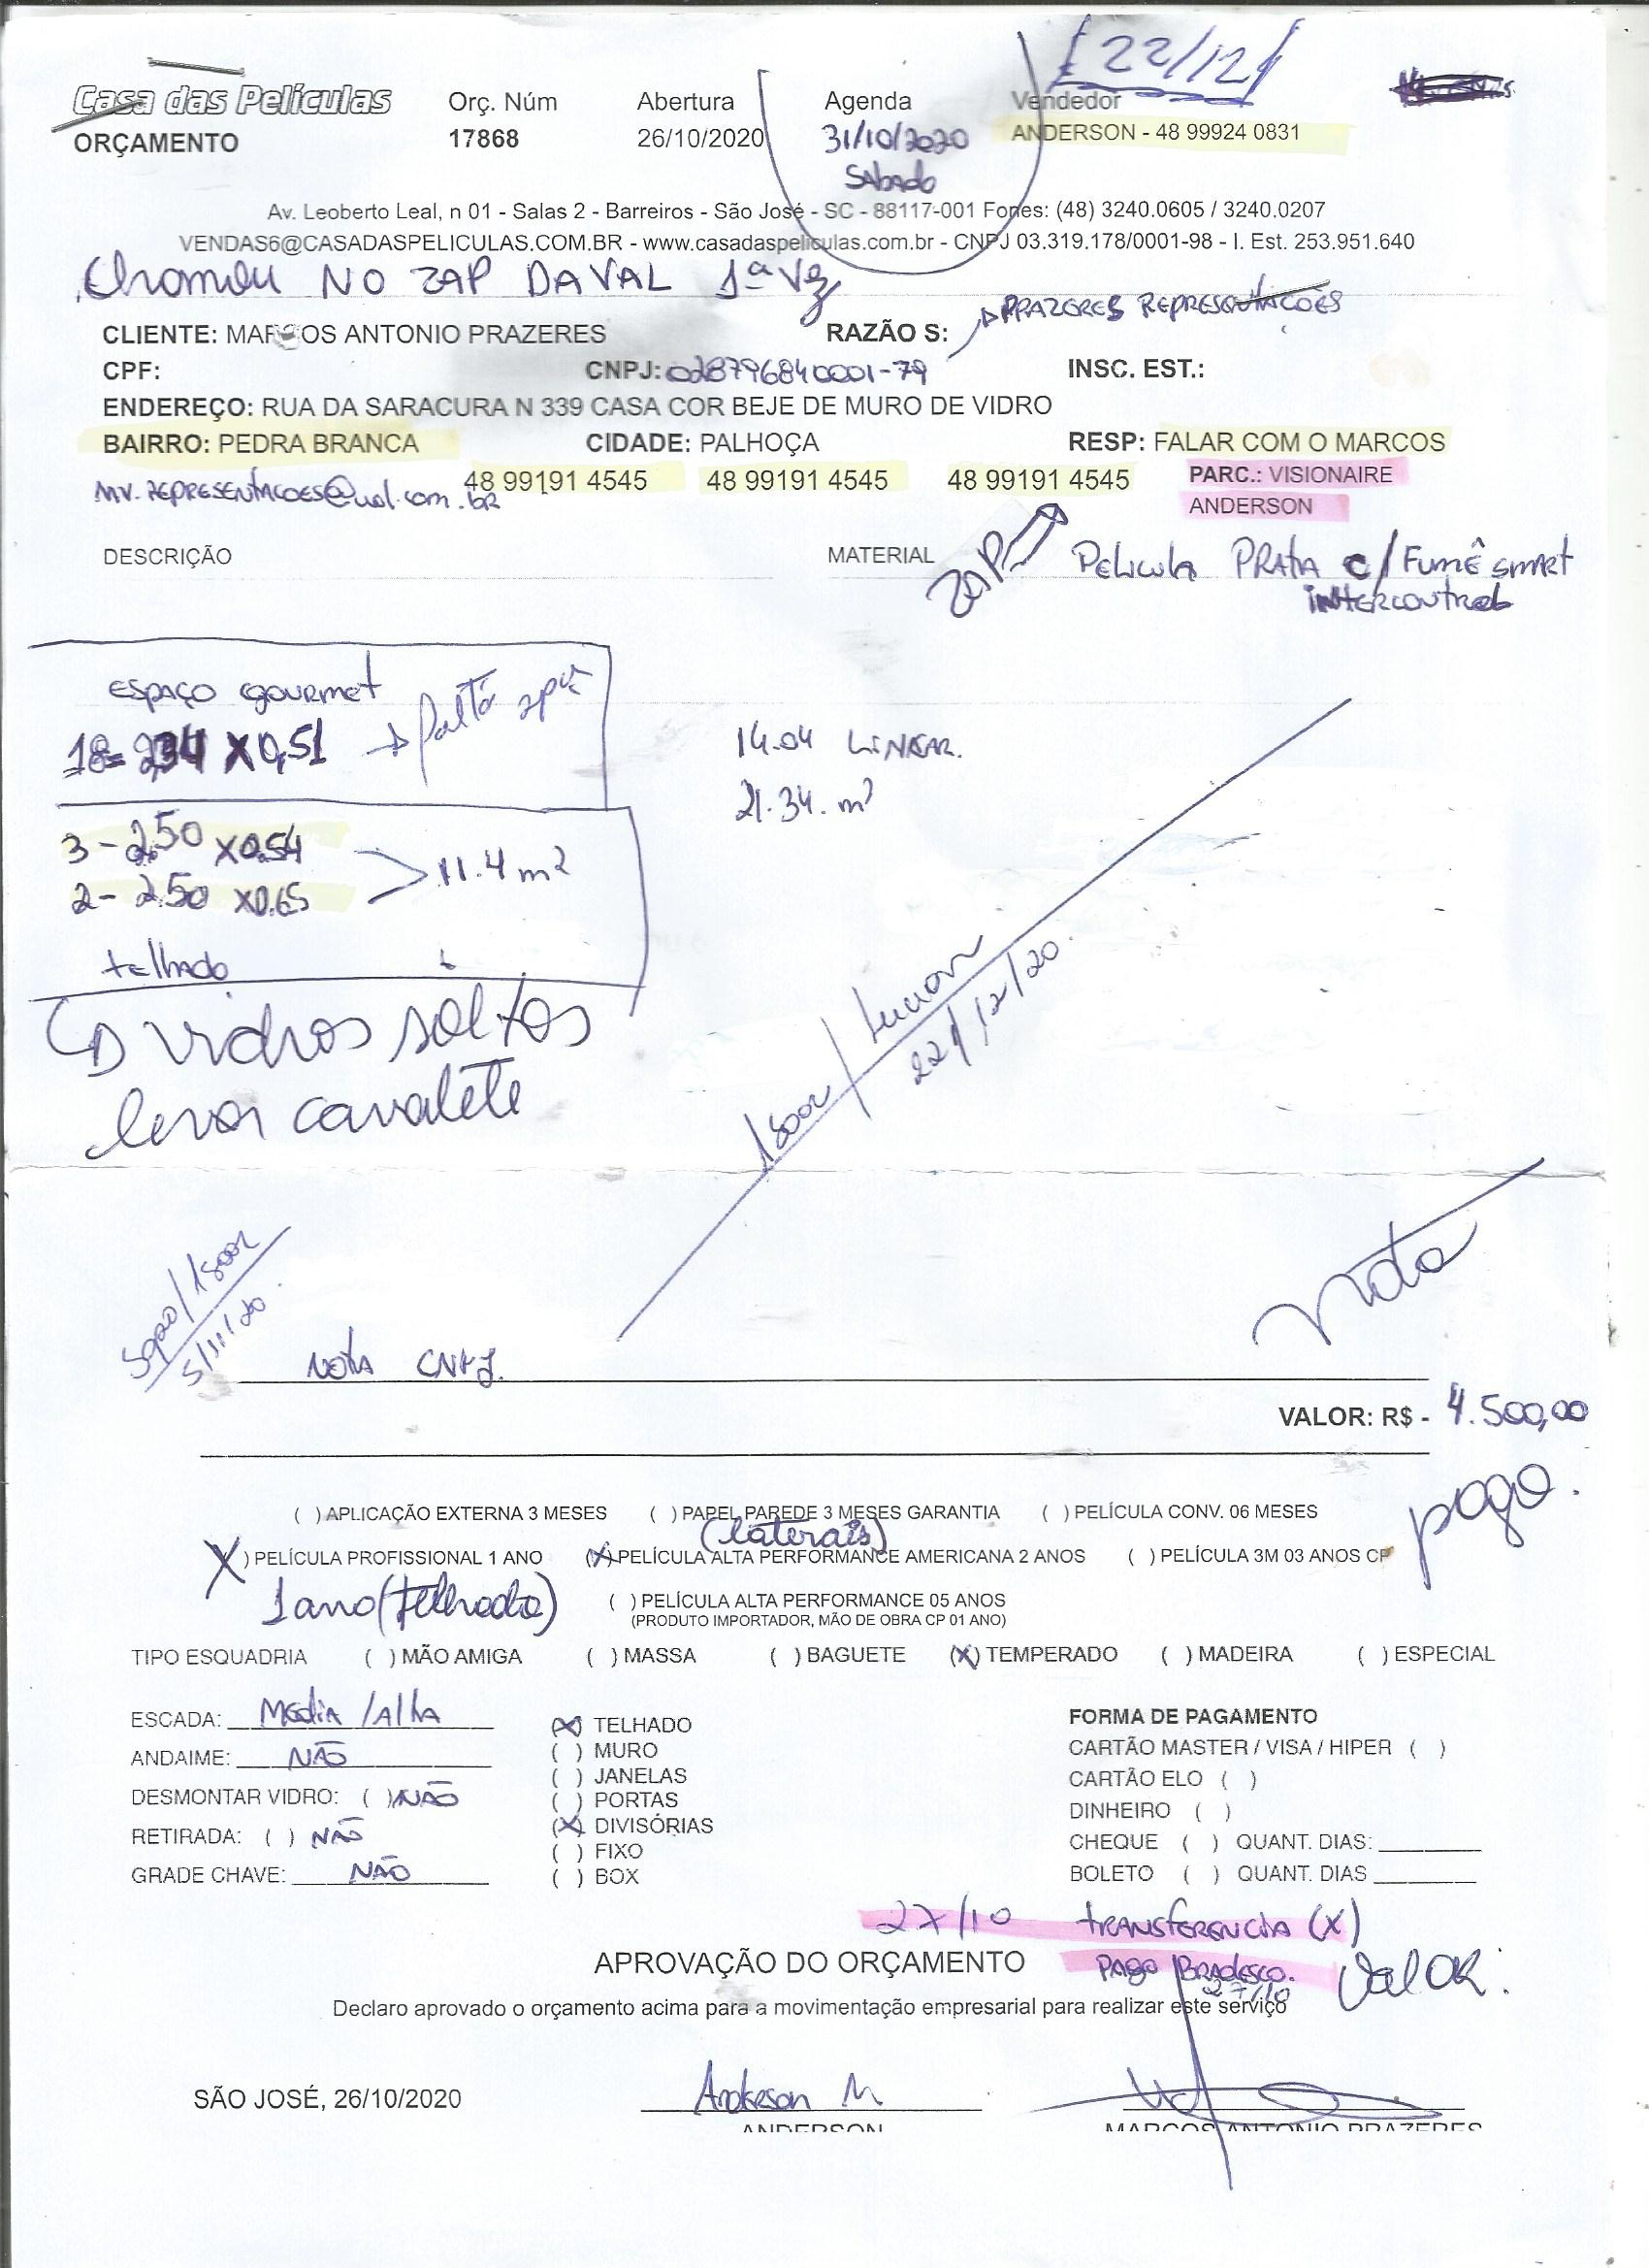 [22/12]
Casa das Películas
Orç. Núm Abertura Agenda Vendedor
ORÇAMENTO 17868 26/10/2020 31/10/2020 ANDERSON - 48 99924 0831
Sabado
Av. Leoberto Leal, n 01 - Salas 2 - Barreiros - São José - SC - 88117-001 Fones: (48) 3240.0605 / 3240.0207
VENDAS6@CASADASPELICULAS.COM.BR - www.casadaspeliculas.com.br - CNPJ 03.319.178/0001-98 - I. Est. 253.951.640
Chamou NO ZAP DA VAL 1ª Vez
PRAZERES REPRESENTAÇÕES
CLIENTE: MARCOS ANTONIO PRAZERES RAZÃO S:
CPF: CNPJ: 028796840001-79 INSC. EST.:
ENDEREÇO: RUA DA SARACURA N 339 CASA COR BEJE DE MURO DE VIDRO
BAIRRO: PEDRA BRANCA CIDADE: PALHOÇA RESP: FALAR COM O MARCOS
48 99191 4545 48 99191 4545 48 99191 4545 PARC.: VISIONAIRE
MV.REPRESENTACOES@uol.com.br ANDERSON
DESCRIÇÃO MATERIAL ZAP Pelicula PRata c/ Fumê smart
intercontrol
ESPAÇO gourmet
18= 2,34 X 0,51 falta
14.04 LINEAR.
21.34. m²
3 - 2.50 X 0.54
2 - 2.50 X 0.65
11.4 m²
telhado
vidros soltos
levar cavalete
22/12/20
5/11/20
Nota
NOTA CNPJ.
VALOR: R$ - 4.500,00
pago.
( ) APLICAÇÃO EXTERNA 3 MESES ( ) PAPEL PAREDE 3 MESES GARANTIA ( ) PELÍCULA CONV. 06 MESES
(laterais)
(X) PELÍCULA PROFISSIONAL 1 ANO (X) PELÍCULA ALTA PERFORMANCE AMERICANA 2 ANOS ( ) PELÍCULA 3M 03 ANOS CP
1 ano (telhado) ( ) PELÍCULA ALTA PERFORMANCE 05 ANOS
(PRODUTO IMPORTADOR, MÃO DE OBRA CP 01 ANO)
TIPO ESQUADRIA ( ) MÃO AMIGA ( ) MASSA ( ) BAGUETE (X) TEMPERADO ( ) MADEIRA ( ) ESPECIAL
ESCADA: Média / Alta
ANDAIME: NÃO
DESMONTAR VIDRO: ( ) NÃO
RETIRADA: ( ) NÃO
GRADE CHAVE: NÃO
(X) TELHADO
( ) MURO
( ) JANELAS
( ) PORTAS
(X) DIVISÓRIAS
( ) FIXO
( ) BOX
FORMA DE PAGAMENTO
CARTÃO MASTER / VISA / HIPER ( )
CARTÃO ELO ( )
DINHEIRO ( )
CHEQUE ( ) QUANT. DIAS:
BOLETO ( ) QUANT. DIAS
27/10 TRANSFERENCIA (X)
APROVAÇÃO DO ORÇAMENTO PAGO BRADESCO. Val OK.
27/10
Declaro aprovado o orçamento acima para a movimentação empresarial para realizar este serviço
SÃO JOSÉ, 26/10/2020 Anderson M
ANDERSON MARCOS ANTONIO PRAZERES